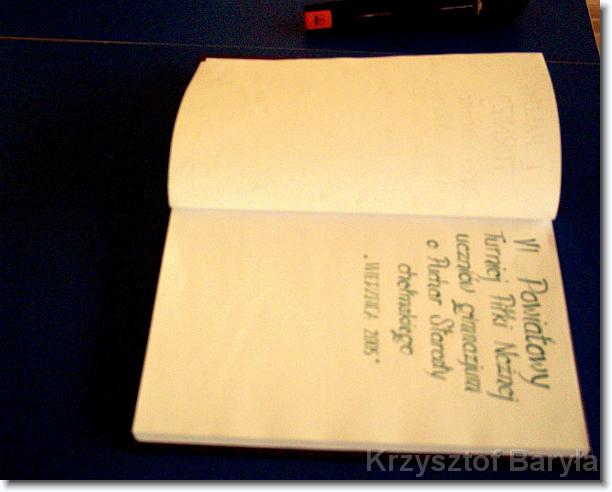 VI Powiatowy
Turniej Piłki Nożnej
uczniów gimnazjum
o Puchar Starosty
chełmskiego
"WIERZBICA 2005"
Krzysztof Baryła